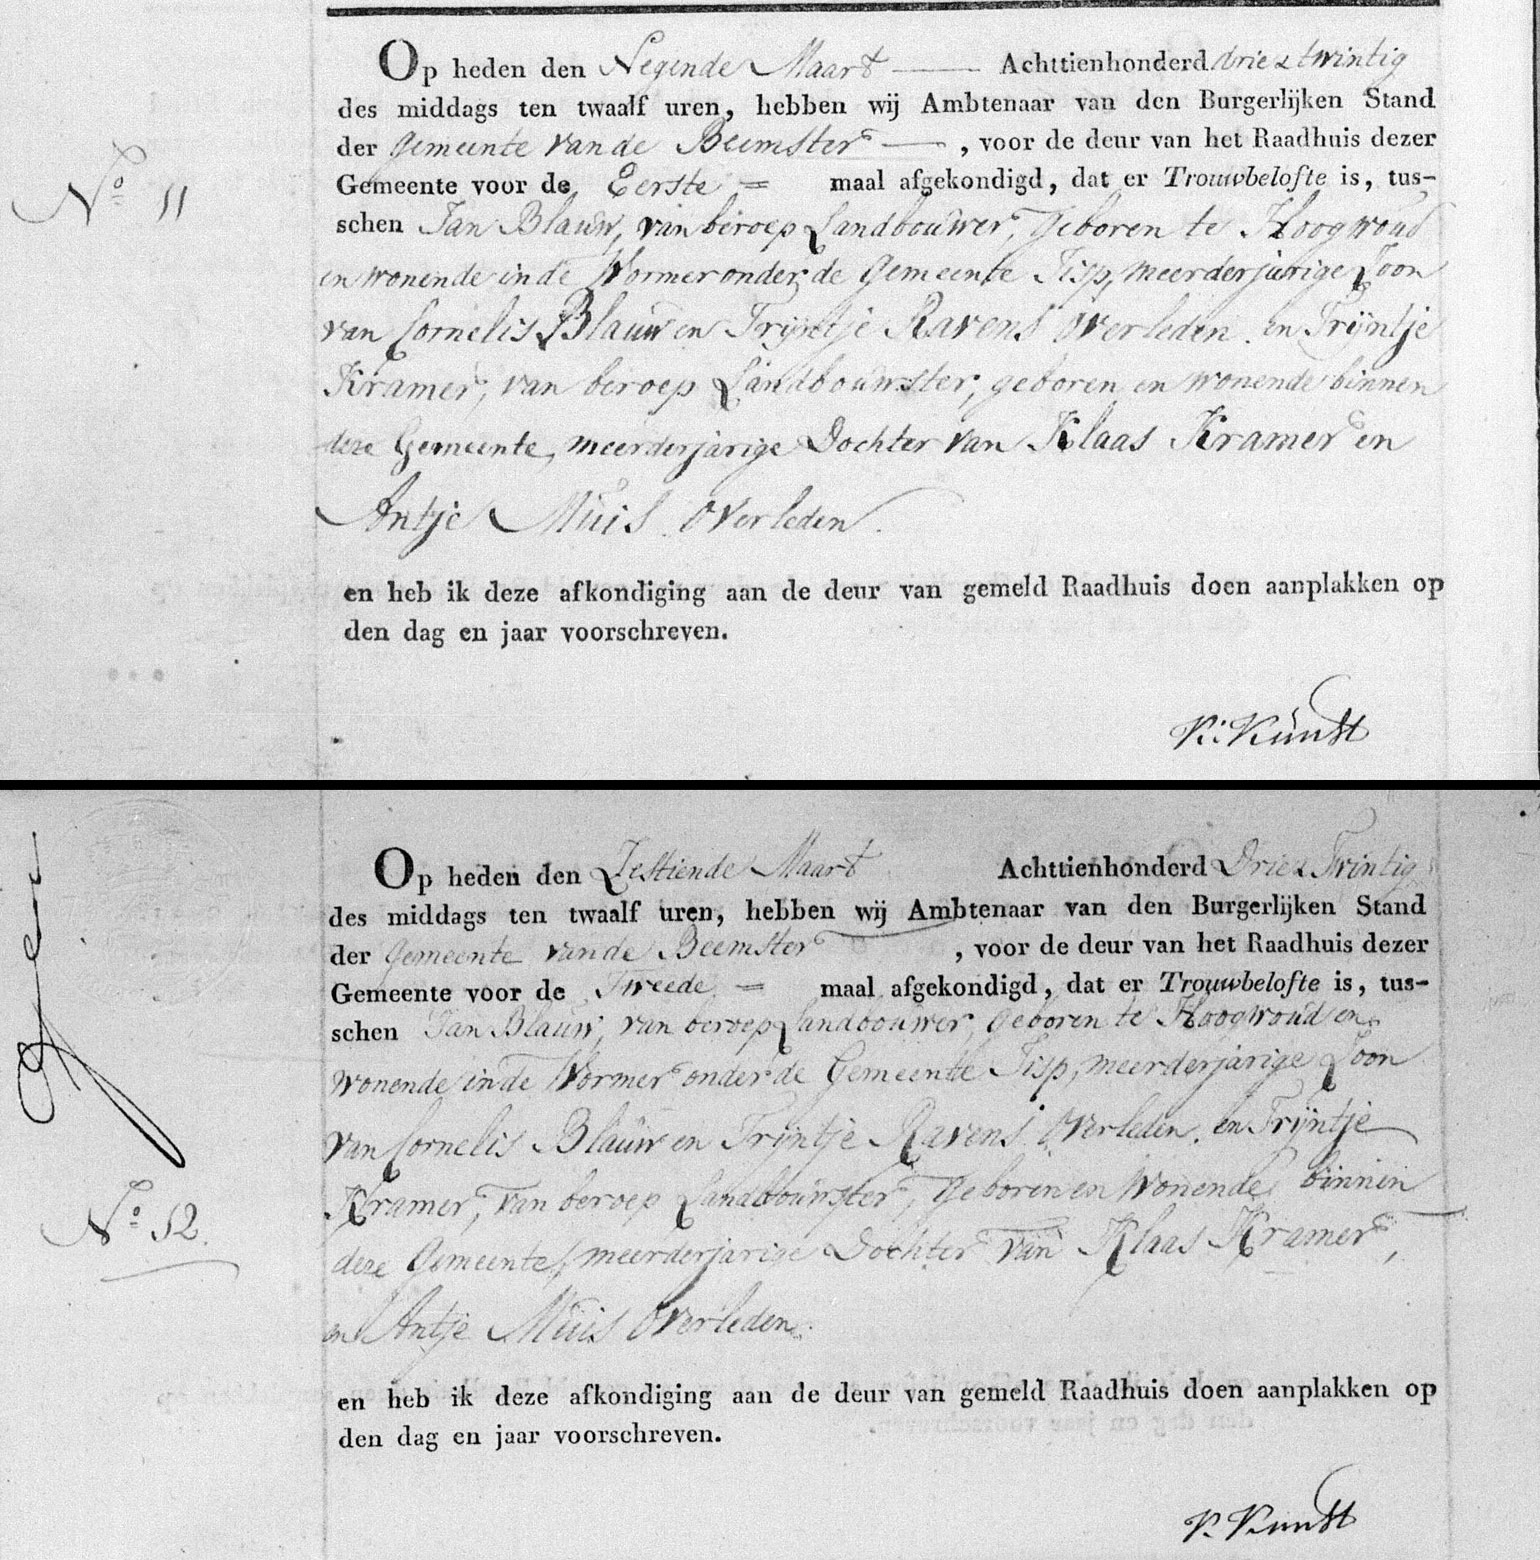 Op heden den Negende Maart — Achttienhonderd drie & twintig
des middags ten twaalf uren, hebben wij Ambtenaar van den Burgerlijken Stand
der Gemeente van de Beemster —, voor de deur van het Raadhuis dezer
Gemeente voor de Eerste = maal afgekondigd, dat er Trouwbelofte is, tus-
No 11
schen Jan Blauw, van beroep Landbouwer, geboren te Hoogwoud
en wonende in de Wormer onder de Gemeente Jisp, meerderjarige Zoon
van Cornelis Blauw en Trijntje Ravens overleden. en Trijntje
Kramer, van beroep Landbouwster, geboren en wonende binnen
deze Gemeente, meerderjarige Dochter van Klaas Kramer en
Antje Muis overleden.
en heb ik deze afkondiging aan de deur van gemeld Raadhuis doen aanplakken op
den dag en jaar voorschreven.
K: Kunst
Op heden den Zestiende Maart Achttienhonderd Drie & Twintig
des middags ten twaalf uren, hebben wij Ambtenaar van den Burgerlijken Stand
der Gemeente van de Beemster, voor de deur van het Raadhuis dezer
Gemeente voor de Tweede = maal afgekondigd, dat er Trouwbelofte is, tus-
schen Jan Blauw, van beroep Landbouwer, geboren te Hoogwoud en
wonende in de Wormer onder de Gemeente Jisp, meerderjarige Zoon
van Cornelis Blauw en Trijntje Ravens overleden. en Trijntje
No 12.
Kramer, van beroep Landbouwster, geboren en wonende binnen
deze Gemeente, meerderjarige Dochter van Klaas Kramer,
en Antje Muis overleden.
en heb ik deze afkondiging aan de deur van gemeld Raadhuis doen aanplakken op
den dag en jaar voorschreven.
K. Kunst